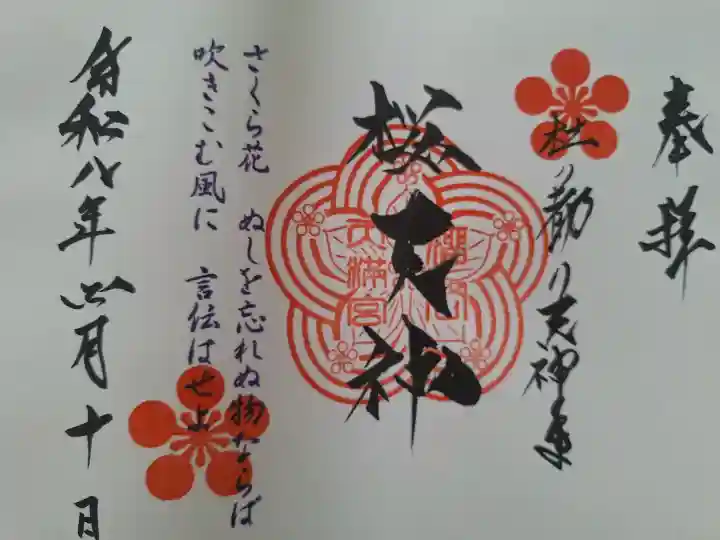 奉拝
杜の都の天神
桜天神
天満宮
さくら花 ぬしを忘れぬ物ならば
吹きこむ風に 言伝はせよ
令和八年四月十日